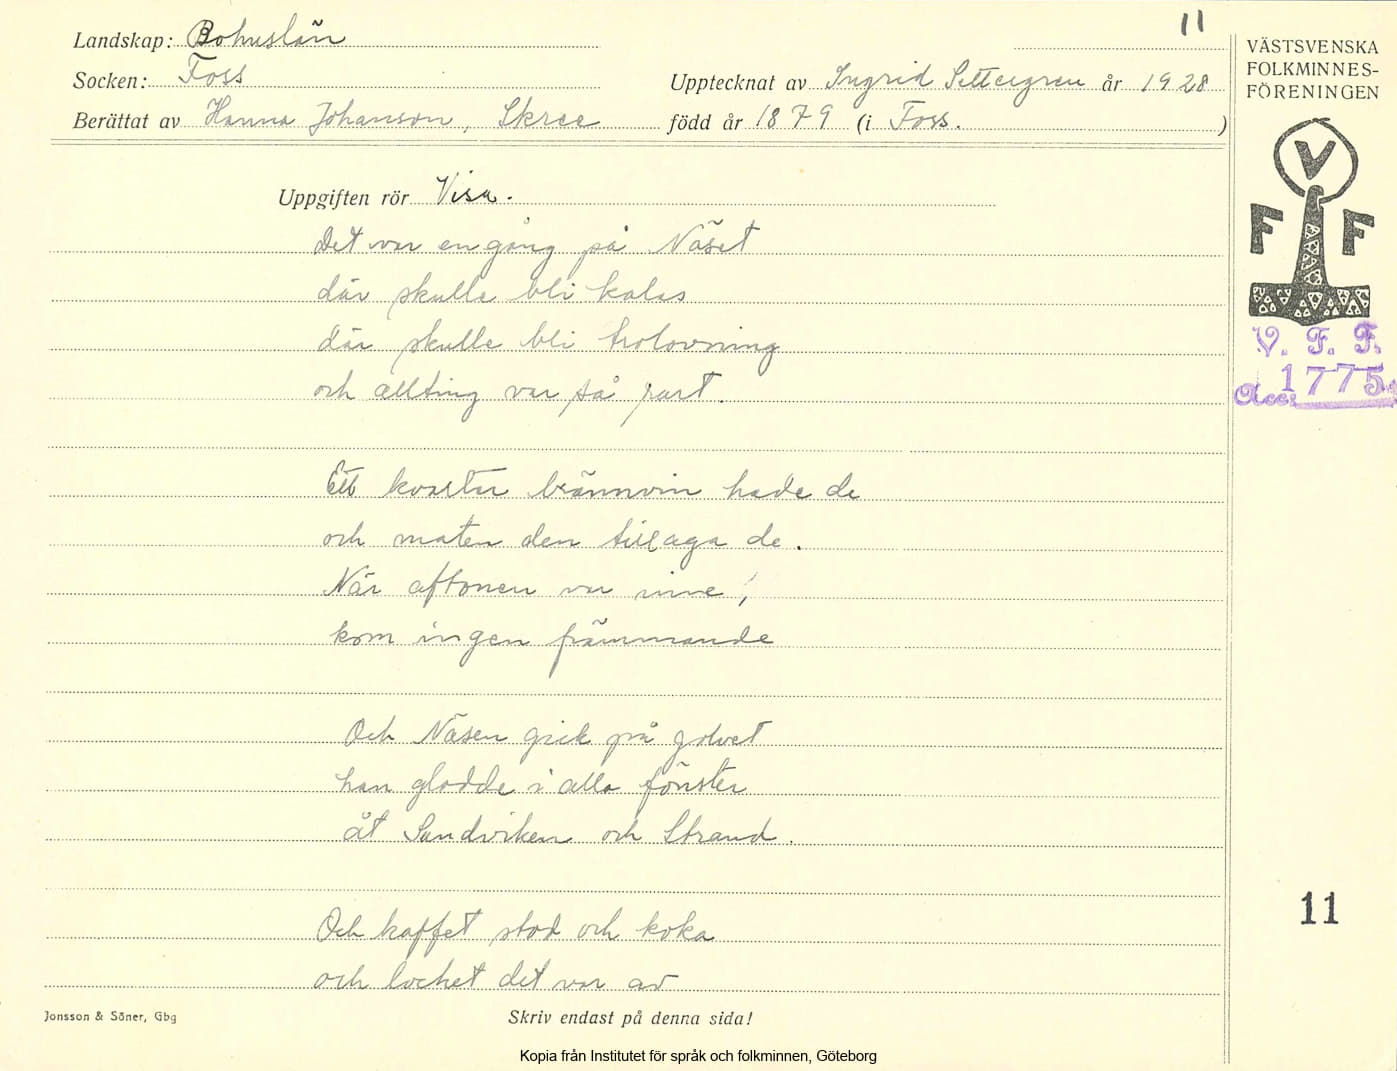 11
Landskap: Bohuslän
Socken: Foss
Upptecknat av Ingrid Settergren år 1928
Berättat av Hanna Johanson, Skree född år 1879 (i Foss.)
VÄSTSVENSKA
FOLKMINNES-
FÖRENINGEN
V
F F
V. F. F.
Acc. 1775
Uppgiften rör Visa.
Det var en gång på Näset
där skulle bli kalas
där skulle bli trolovning
och allting var så rart.
Ett kvarter brännvin hade de
och maten den tillaga de.
När aftonen var inne,
kom ingen främmande
Och Näsen gick på golvet
han glodde i alla fönster
åt Sandviken och Strand.
Och kaffet stod och koka
och locket det var av
11
Jonsson & Söner, Gbg
Skriv endast på denna sida!
Kopia från Institutet för språk och folkminnen, Göteborg